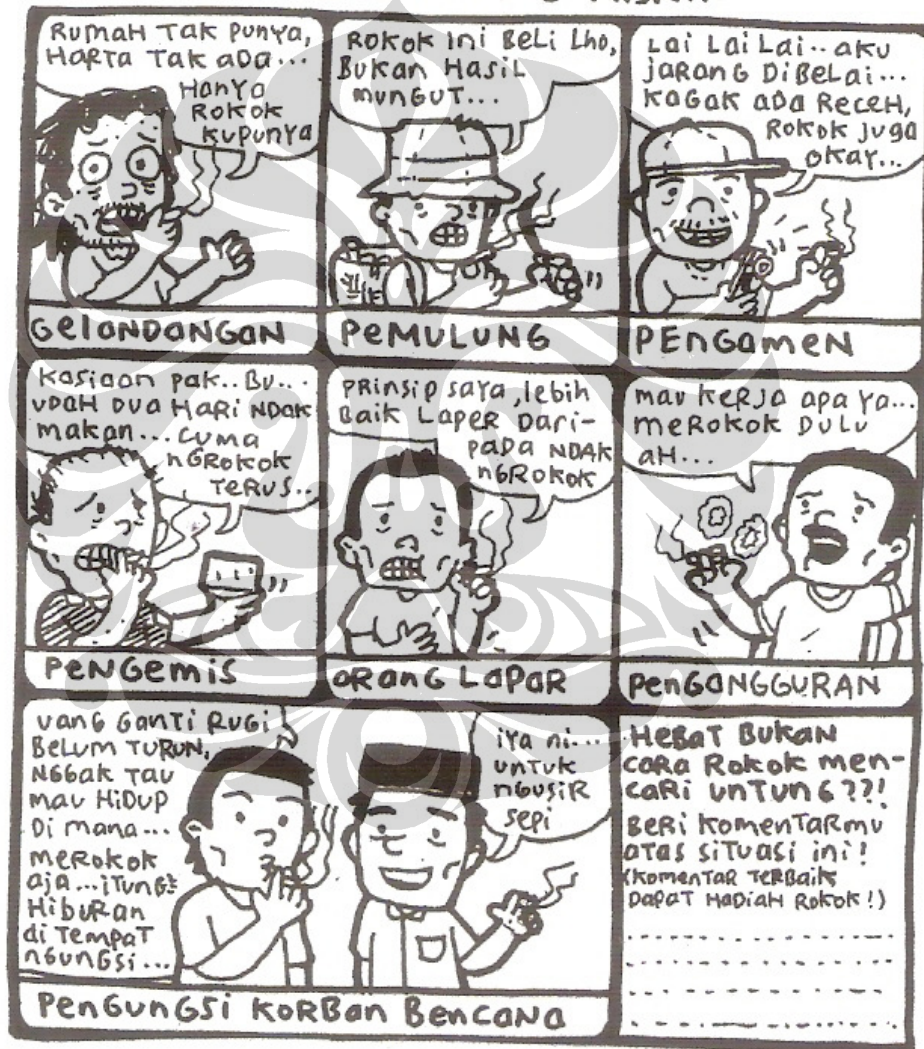 RUMAH TAK PUNYA,
HARTA TAK ADA...
HANYA
ROKOK
KUPUNYA
GELANDANGAN
ROKOK INI BELI LHO,
BUKAN HASIL
MUNGUT...
PEMULUNG
LAI LAI LAI.. AKU
JARANG DIBELAI...
KAGAK ADA RECEH,
ROKOK JUGA
OKAY...
PENGAMEN
KASIAAN PAK.. BU...
UDAH DUA HARI NDAK
MAKAN... CUMA
NGROKOK
TERUS..
PENGEMIS
PRINSIP SAYA, LEBIH
BAIK LAPER DARI-
PADA NDAK
NGROKOK
ORANG LAPAR
MAU KERJA APA YA...
MEROKOK DULU
AH...
PENGANGGURAN
UANG GANTI RUGI
BELUM TURUN,
NGGAK TAU
MAU HIDUP
DI MANA...
MEROKOK
AJA... ITUNG²
HIBURAN
DI TEMPAT
NGUNGSI...
IYA NI...
UNTUK
NGUSIR
SEPI
PENGUNGSI KORBAN BENCANA
HEBAT BUKAN
CARA ROKOK MEN-
CARI UNTUNG??!
BERI KOMENTARMU
ATAS SITUASI INI!
(KOMENTAR TERBAIK
DAPAT HADIAH ROKOK!)